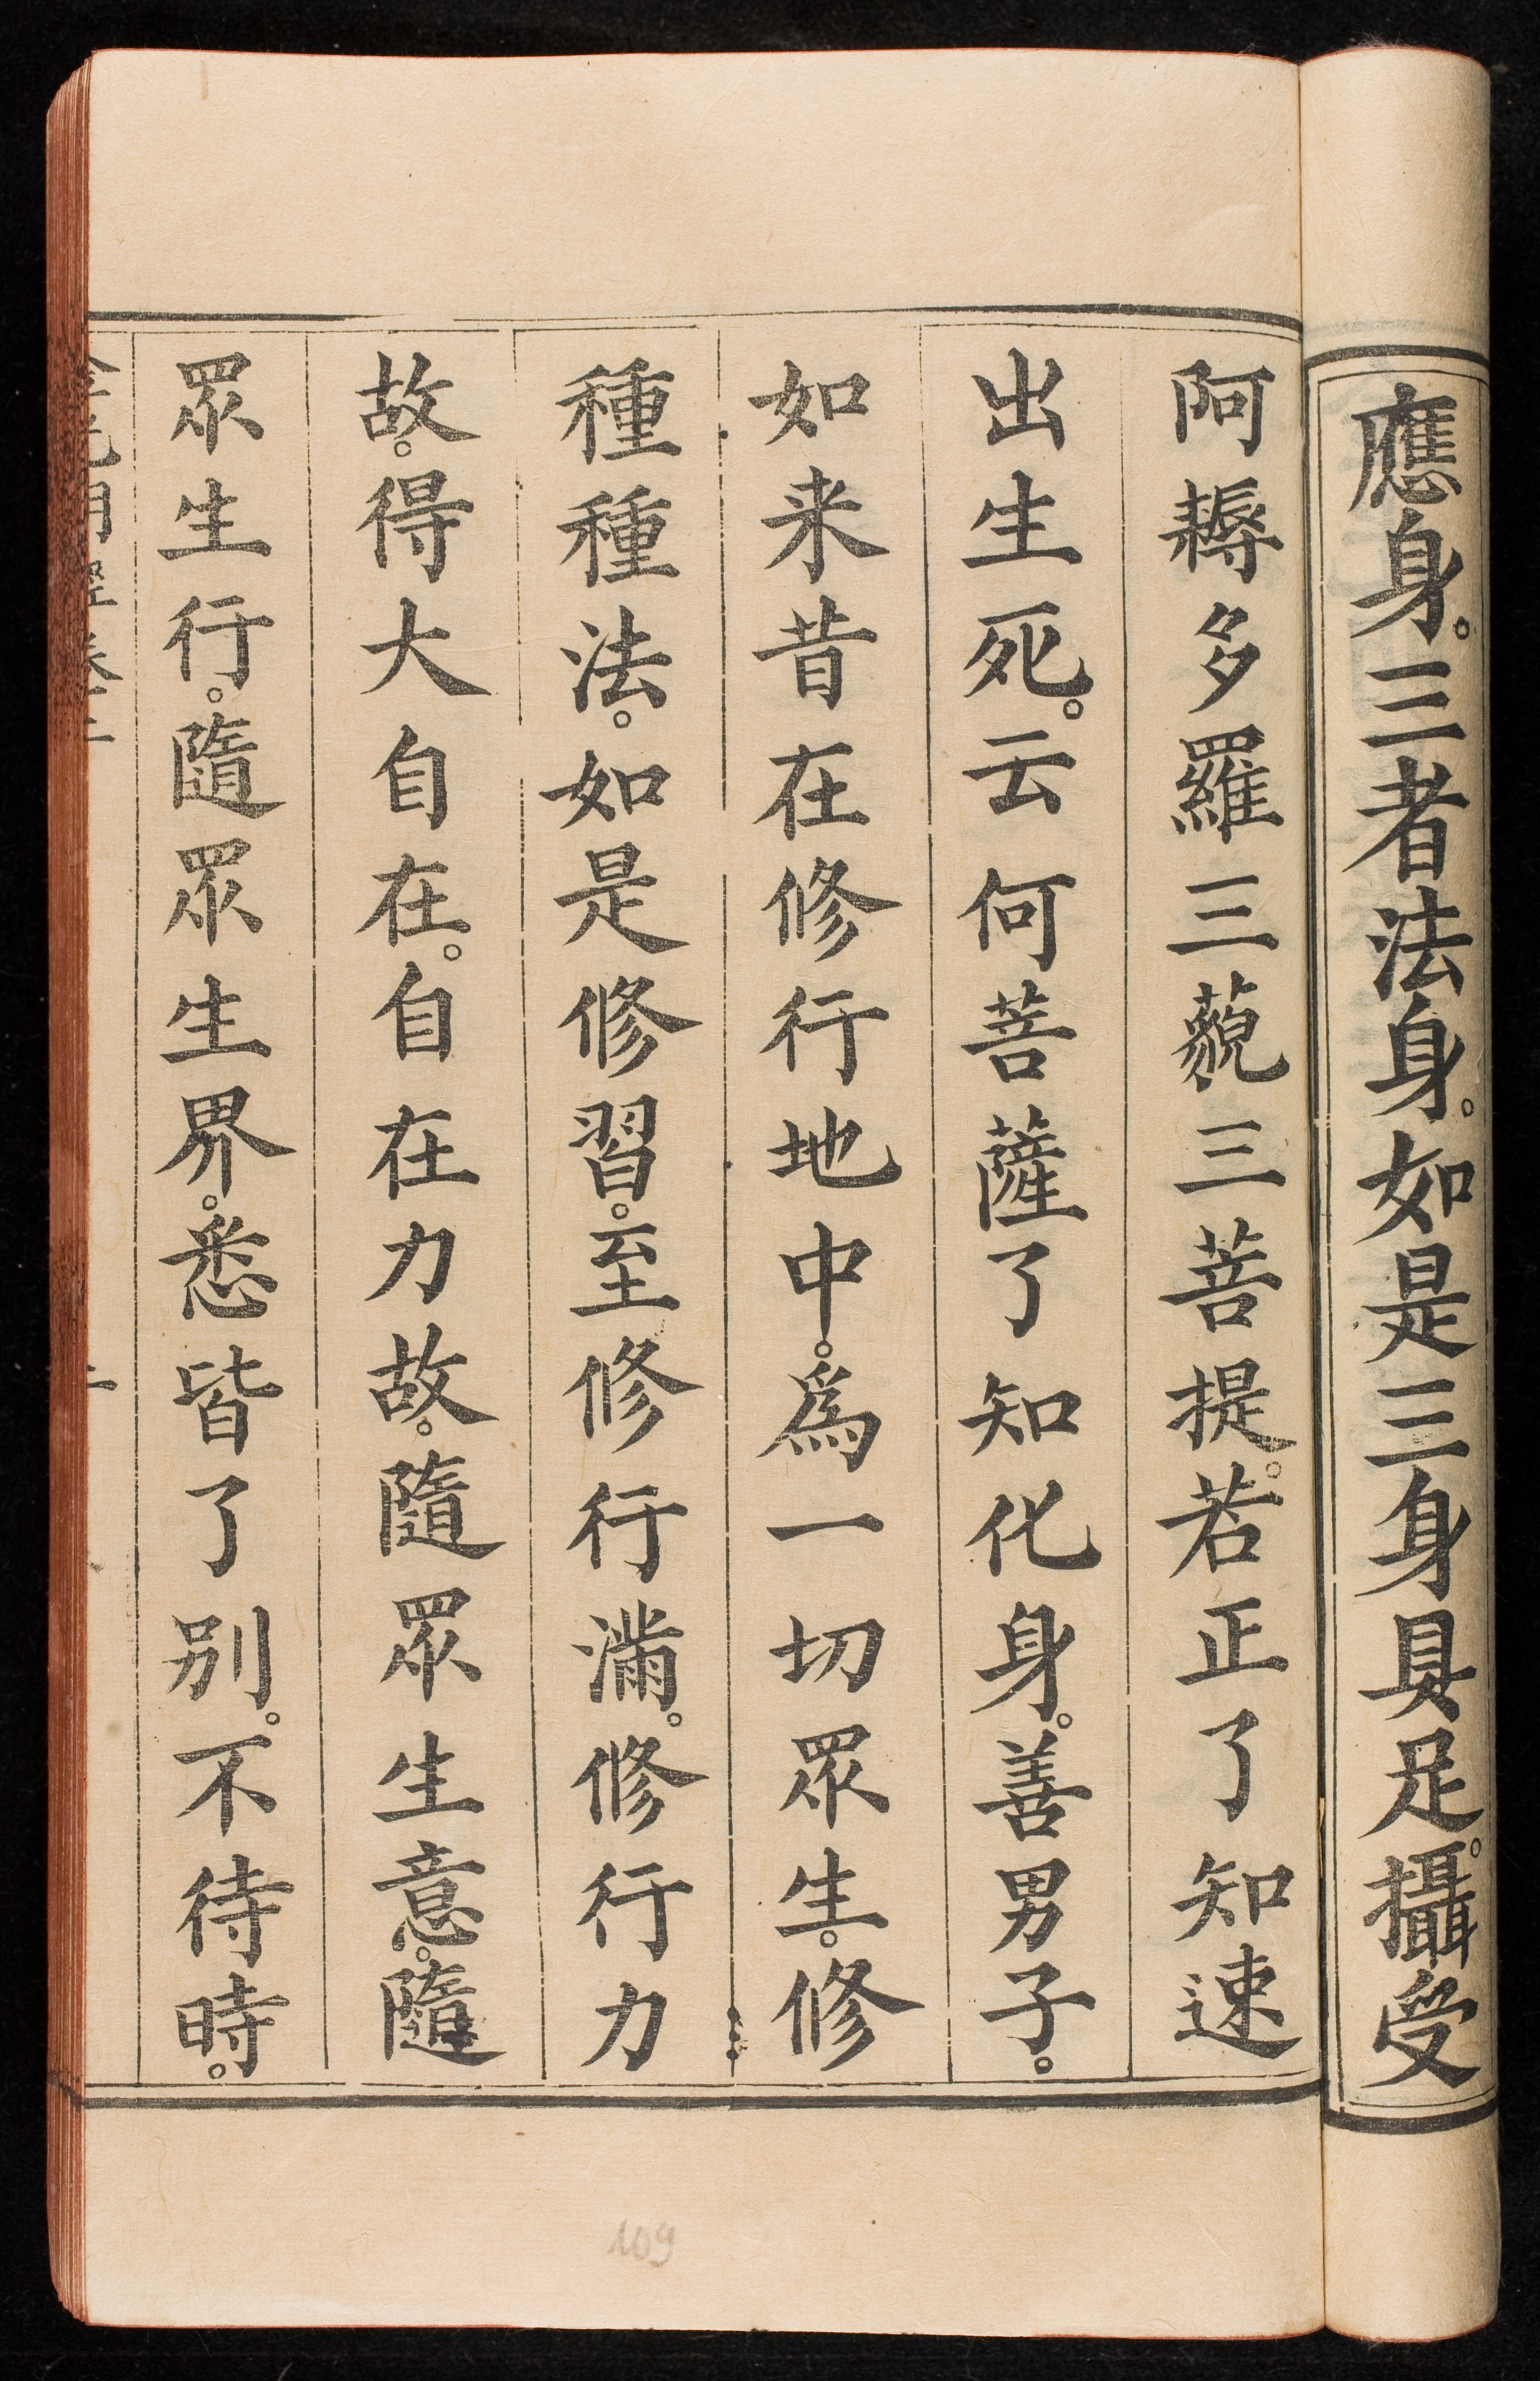 應身。三者法身。如是三身具足。攝受
阿耨多羅三藐三菩提。若正了知速
出生死。云何菩薩了知化身。善男子。
如来昔在修行地中。爲一切眾生。修
種種法。如是修習。至修行滿。修行力
故。得大自在。自在力故。隨眾生意。隨
眾生行。隨眾生界。悉皆了别。不待時。
109